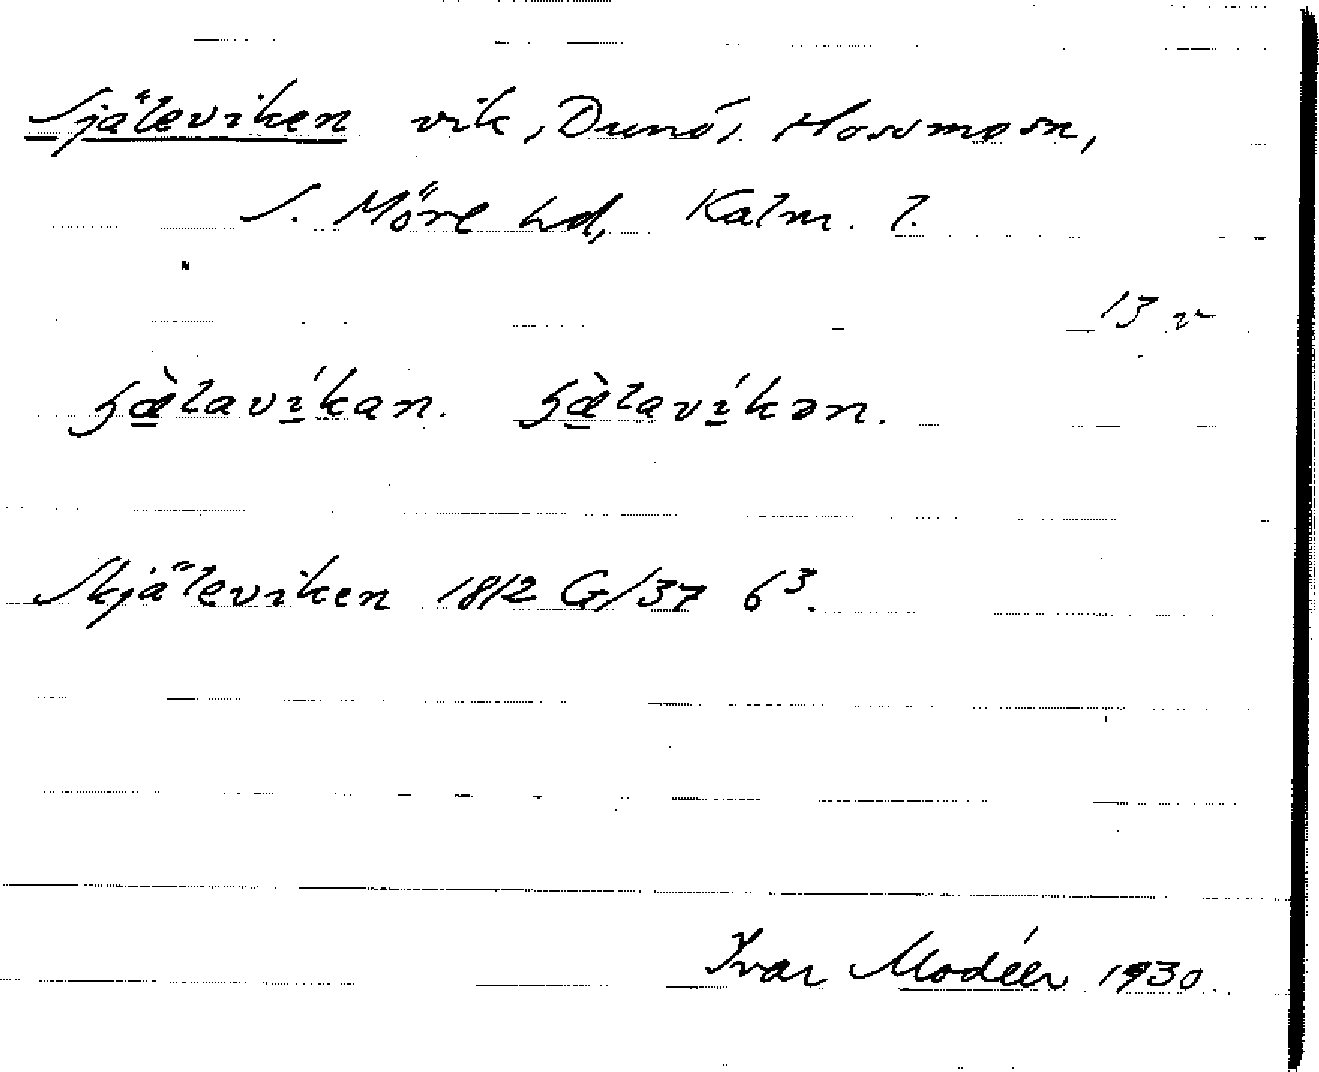 Själeviken vik, Dunö, Hossmo sn,
S. Möre hd, Kalm. l.
13 v
ʂæ̀lavíkan. ʂæ̀lavíkən.
Skjäleviken 1812 G/37 6³.
Ivar Modéer 1930.